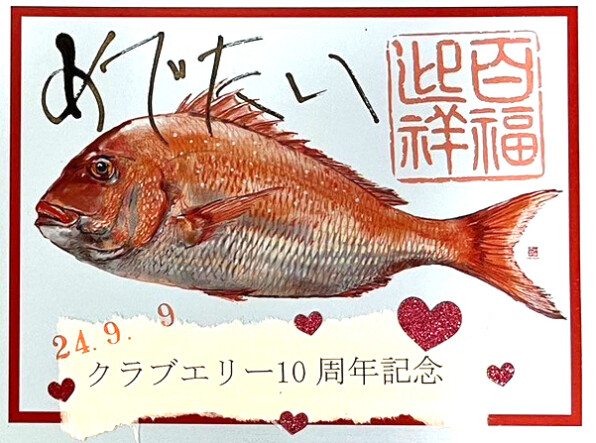 めでたい
百福
迎祥
24.9.9
クラブエリー10周年記念